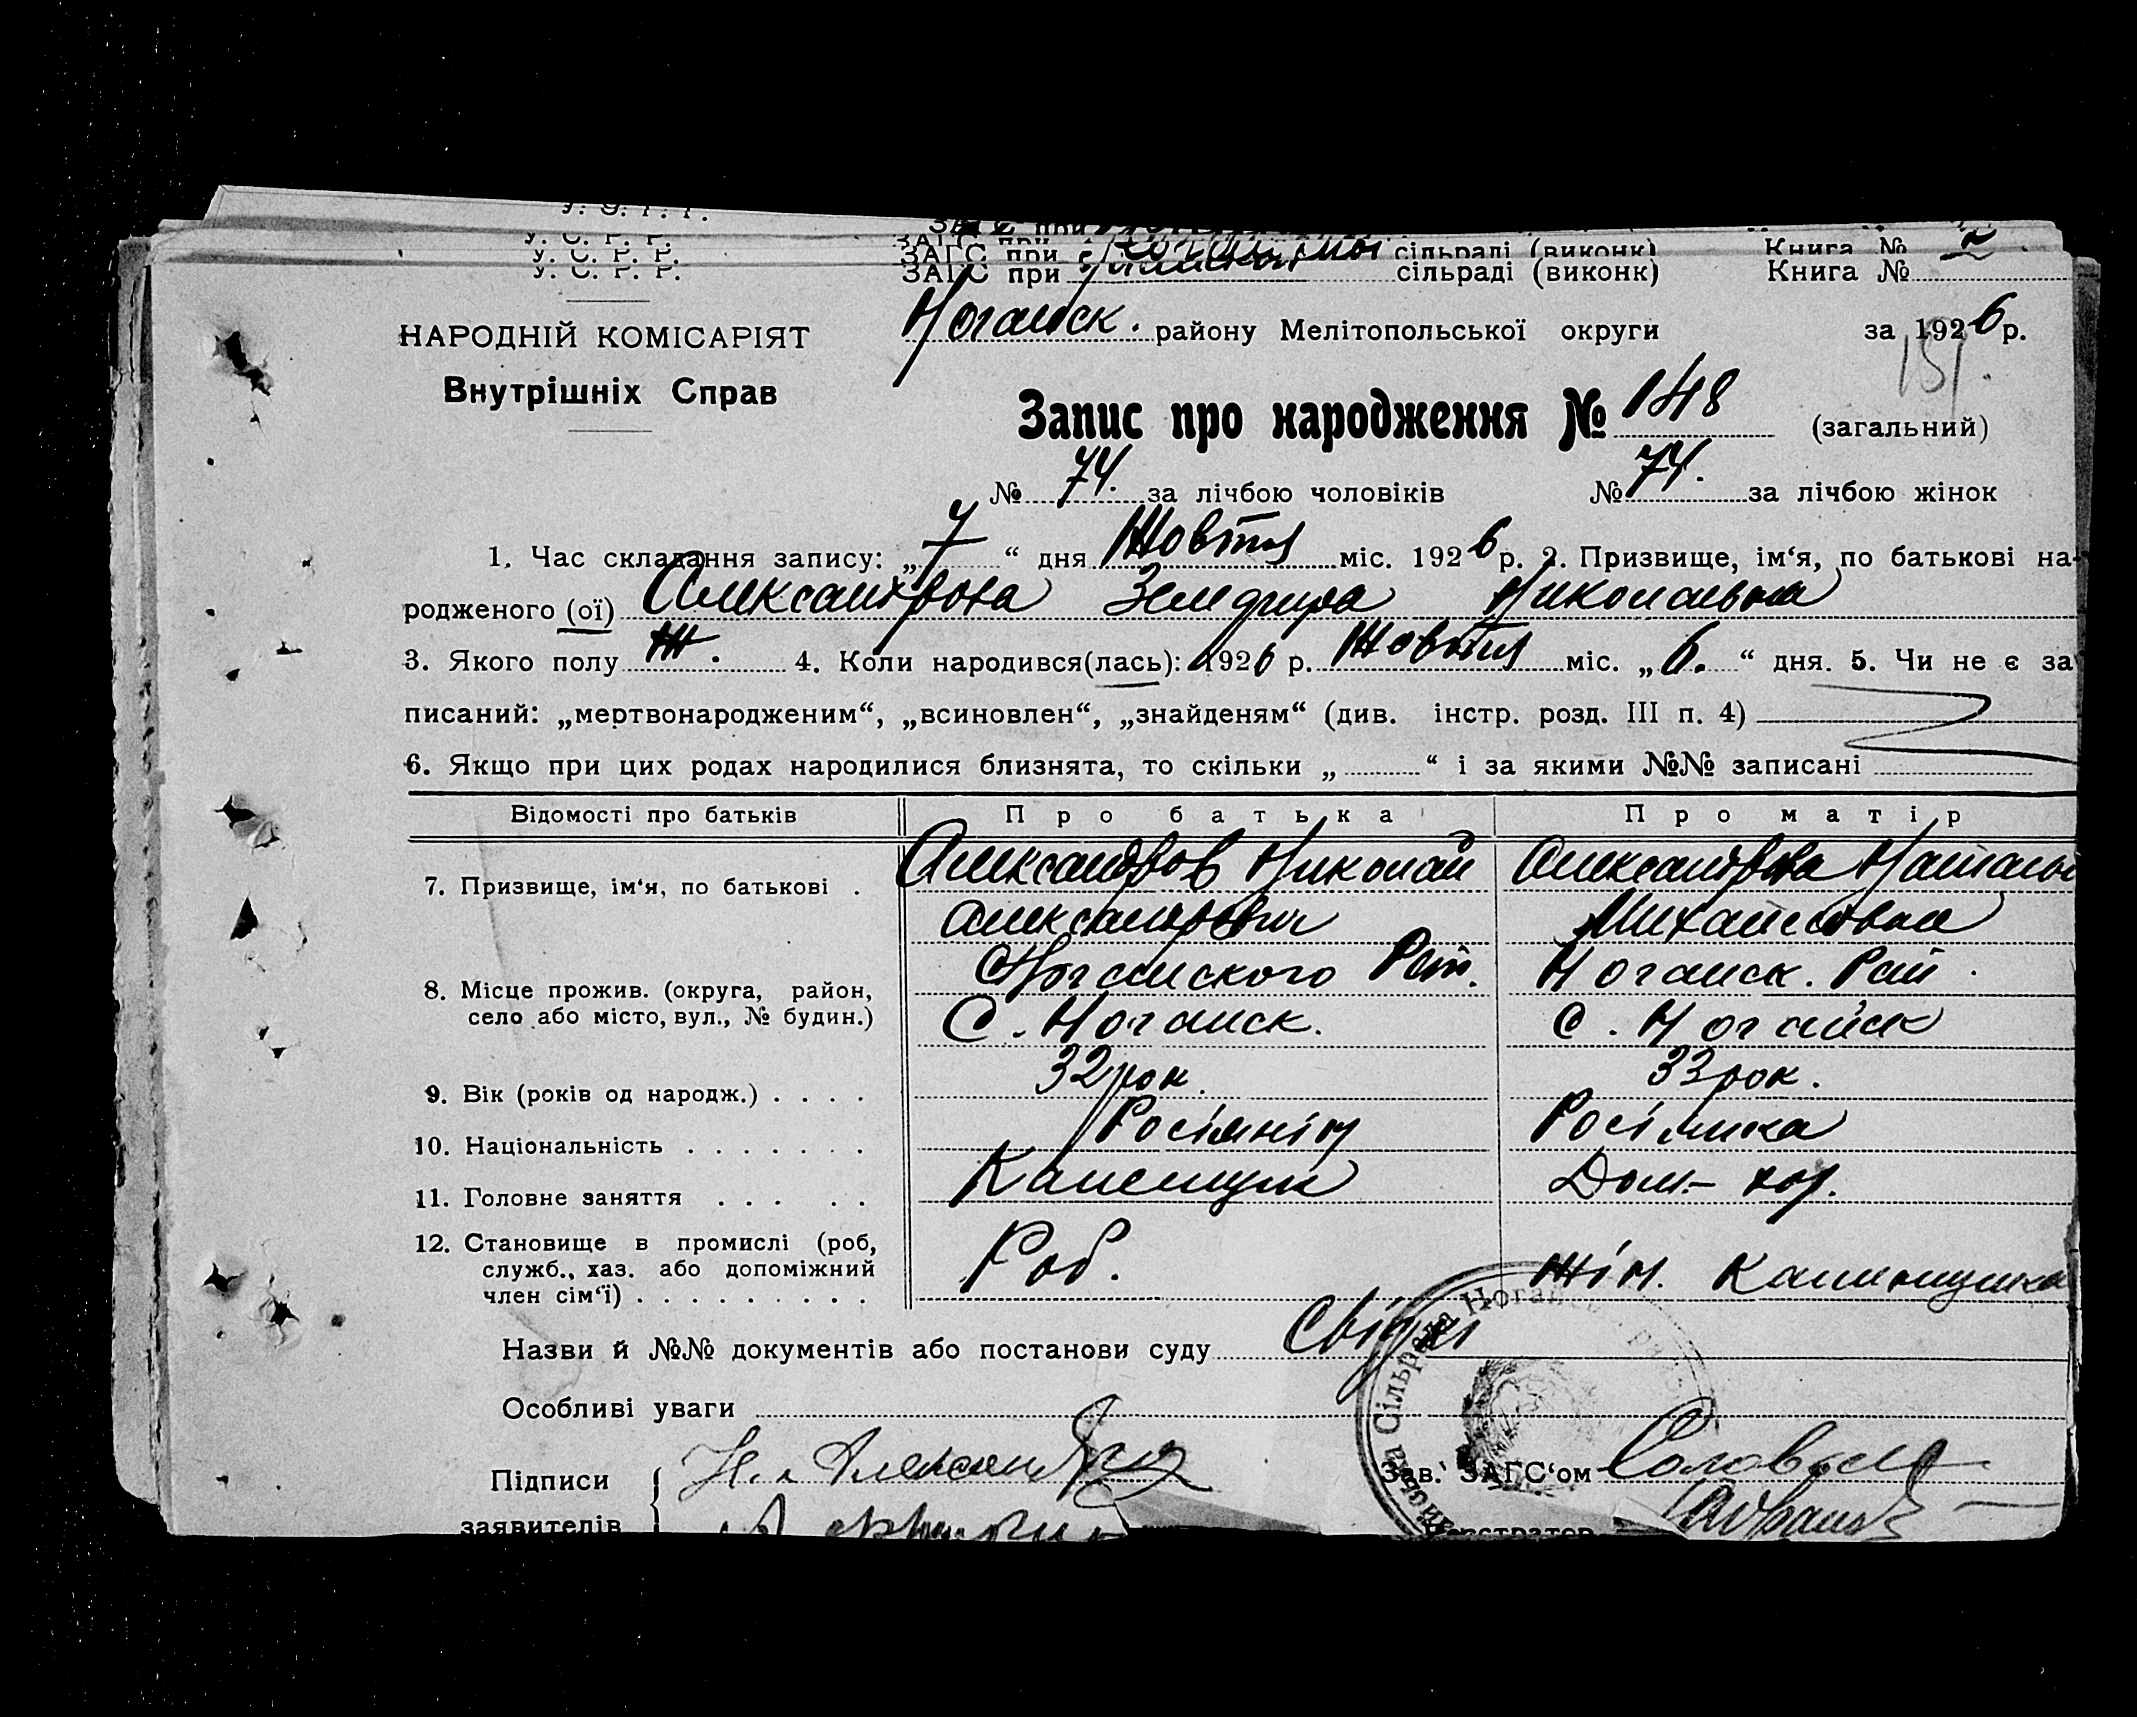 У. С. Р. Р. ЗАГС при сільраді (виконк) Книга № 2
У. С. Р. Р. ЗАГС при сільраді (виконк) Книга №
Ногайск. району Мелітопольської округи за 1926 р.
НАРОДНІЙ КОМІСАРІЯТ
Внутрішніх Справ
151.
Запис про народження № 148 (загальний)
№ 74. за лічбою чоловіків № 74. за лічбою жінок
1. Час складання запису: „ 7 “ дня Жовтня міс. 1926 р. 2. Призвище, ім‘я, по батькові на-
родженого (ої) Александрова Николаевна
3. Якого полу Ж. 4. Коли народився(лась): 1926 р. Жовтня міс. „ 6. “ дня. 5. Чи не є за
писаний: „мертвонародженим“, „всиновлен“, „знайденям“ (див. інстр. розд. III п. 4)
6. Якщо при цих родах народилися близнята, то скільки „ “ і за якими №№ записані
Відомості про батьків Про батька Про матір
7. Призвище, ім‘я, по батькові . Александров Николай Александрова
Александрович Михайловна
8. Місце прожив. (округа, район, село або місто, вул., № будин.) Ногайского Рай. Ногайск. Рай.
С. Ногайск. С. Ногайск
9. Вік (років од народж.) . . . . 32 рок. 33 рок.
10. Національність . . . . . . . Росіянін Росіянка
11. Головне заняття . . . . . Каменщик Дом.- хоз.
12. Становище в промислі (роб,
служб., хаз. або допоміжний
член сім‘ї) . . . . . . . . . Роб. жін. Каменщика
Назви й №№ документів або постанови суду Свідки
Особливі уваги
Підписи Н. Александров Зав. ЗАГС‘ом
заявителів Регстратор